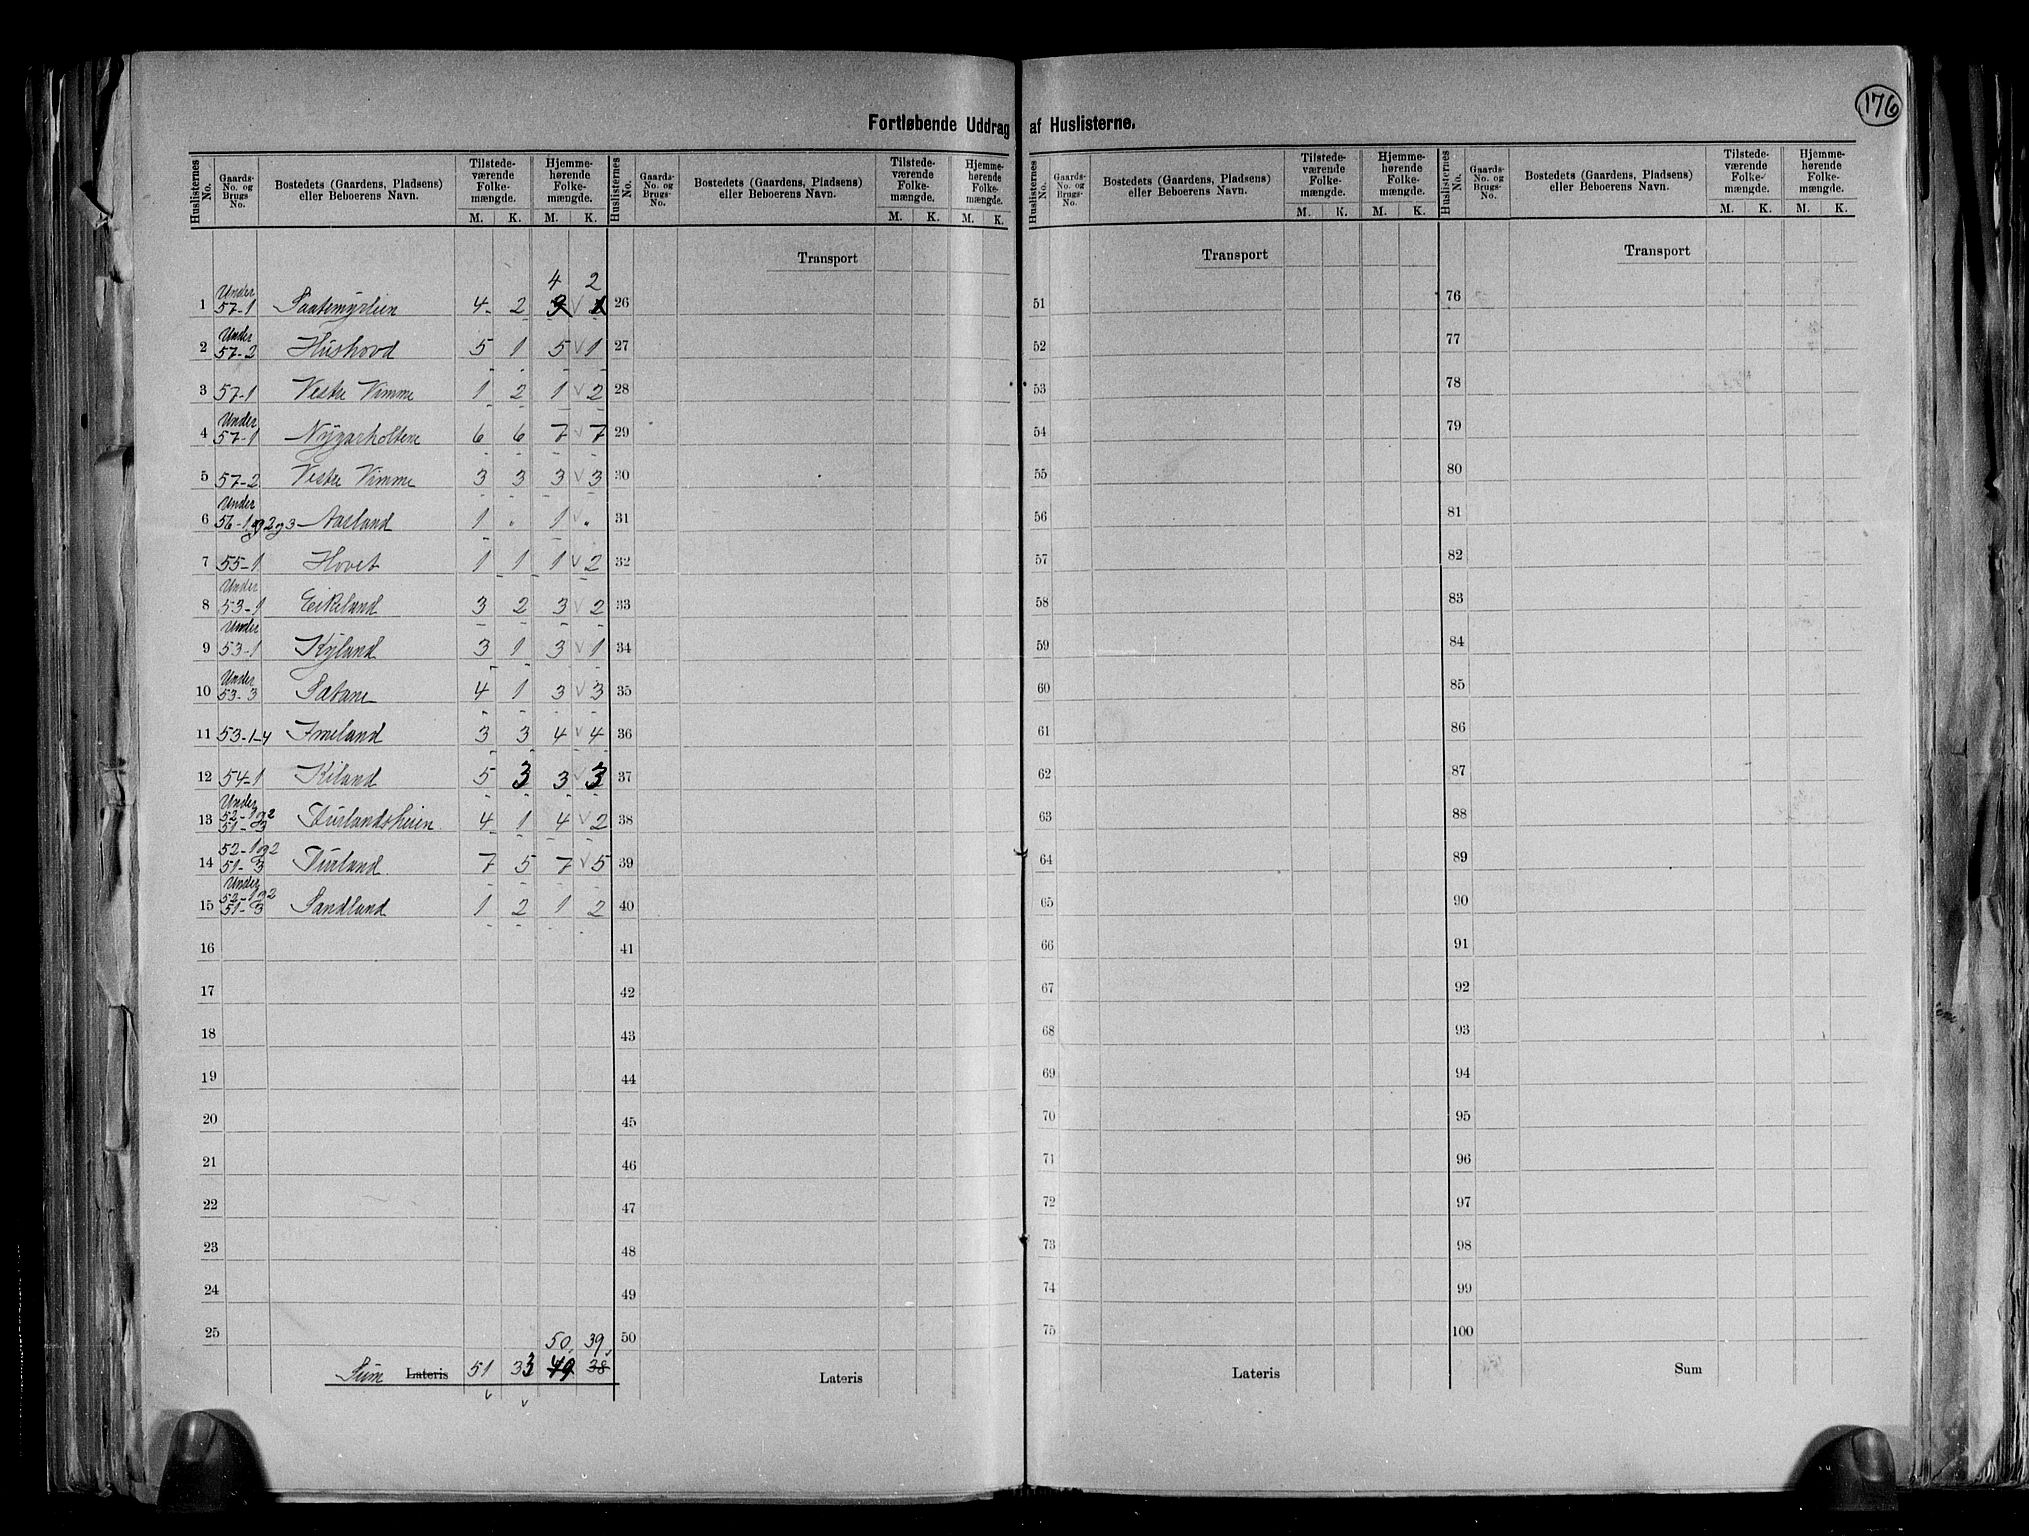 176
Fortløbende Uddrag af Huslisterne.
Huslisternes No. Gaards-No. og Brugs-No. Bostedets (Gaardens, Pladsens) eller Beboerens Navn. Tilstedeværende Folkemængde. M. K. Hjemmehørende Folkemængde. M. K.
Huslisternes No. Gaards-No. og Brugs-No. Bostedets (Gaardens, Pladsens) eller Beboerens Navn. Tilstedeværende Folkemængde. M. K. Hjemmehørende Folkemængde. M. K.
Huslisternes No. Gaards-No. og Brugs-No. Bostedets (Gaardens, Pladsens) eller Beboerens Navn. Tilstedeværende Folkemængde. M. K. Hjemmehørende Folkemængde. M. K.
Huslisternes No. Gaards-No. og Brugs-No. Bostedets (Gaardens, Pladsens) eller Beboerens Navn. Tilstedeværende Folkemængde. M. K. Hjemmehørende Folkemængde. M. K.
Transport Transport Transport
4 2
1 Under 57-1 Saatemyrlien 4 2 3 1
2 Under 57-2 Hushovd 5 1 5 1
3 57-1 Vestre Vimme 1 2 1 2
4 Under 57-1 Nygarholtene 6 6 7 7
5 57-2 Vestre Vimme 3 3 3 3
6 Under 56-1og2og3 Aasland 1 " 1 "
7 55-1 Hovet 1 1 1 2
8 Under 53-1 Eikeland 3 2 3 2
9 Under 53-1 Kyland 3 1 3 1
10 Under 53-3 Sætane 4 1 3 3
11 53-1-4 Imeland 3 3 4 4
12 54-1 Kiland 5 3 3 3
13 Under 52-1og2 51-3 4 1 4 2
14 52-1og2 51-3 7 5 7 5
15 Under 52-1og2 51-3 Sandland 1 2 1 2
16
17
18
19
20
21
22
23
24
25
50 39
Sum Lateris 51 33 49 38
26
27
28
29
30
31
32
33
34
35
36
37
38
39
40
41
42
43
44
45
46
47
48
49
50
Lateris
51
52
53
54
55
56
57
58
59
60
61
62
63
64
65
66
67
68
69
70
71
72
73
74
75
Lateris
76
77
78
79
80
81
82
83
84
85
86
87
88
89
90
91
92
93
94
95
96
97
98
99
100
Sum